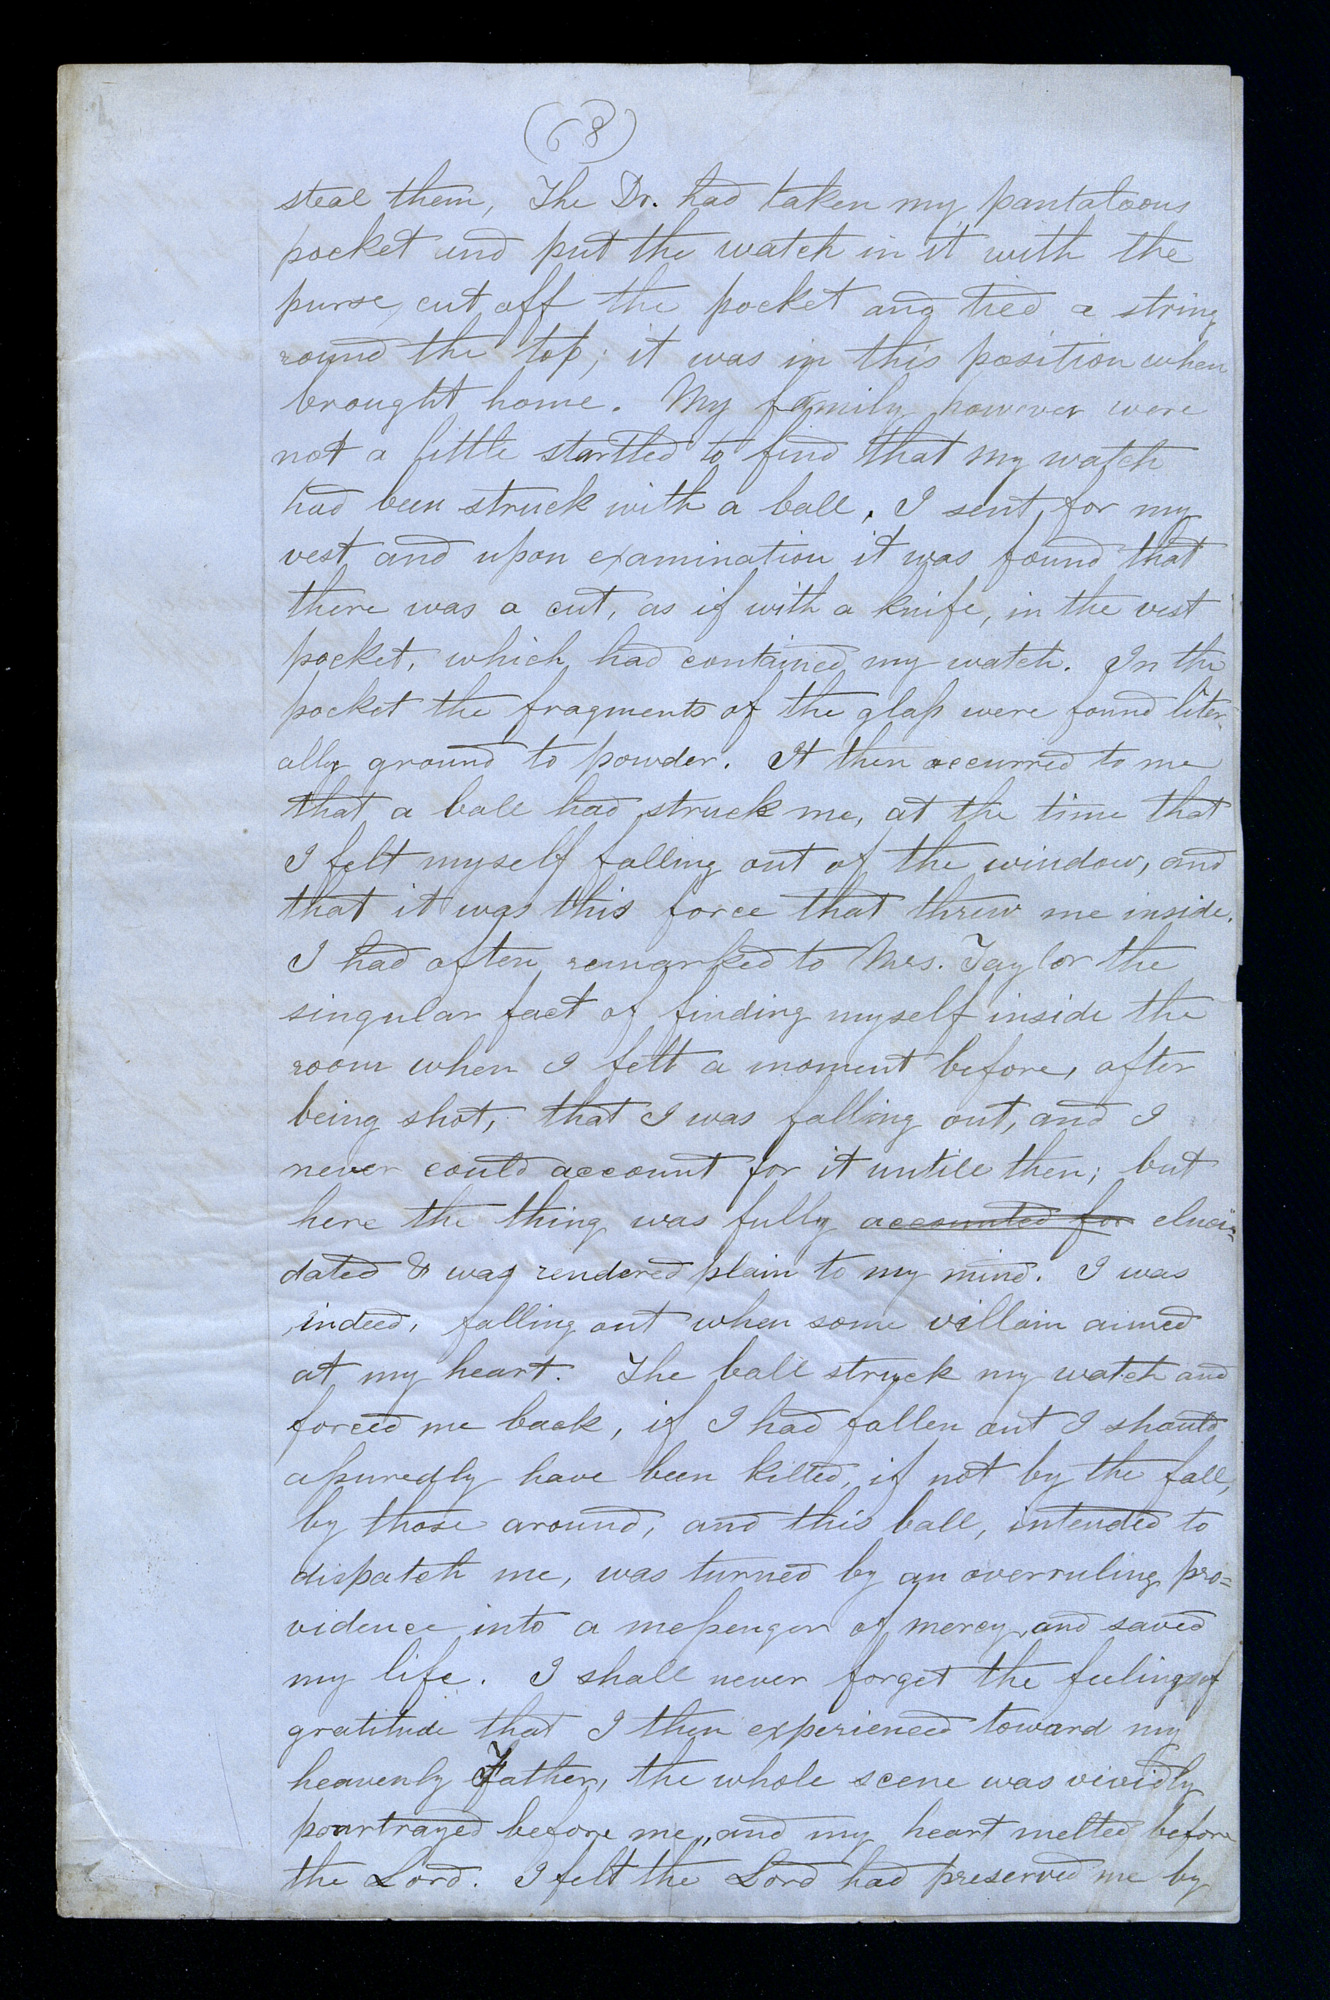 (68)
steal them, The Dr. had taken my pantaloons
pocket and put the watch in it with the
purse, cut off the pocket and tied a string
round the top; it was in this position when
brought home. My family however were
not a little startled to find that my watch
had been struck with a ball. I sent for my
vest and upon examination it was found that
there was a cut, as if with a knife, in the vest
pocket, which had contained my watch. In the
pocket the fragments of the glass were found liter-
ally ground to powder. It then occurred to me
that a ball had struck me, at the time that
I felt myself falling out of the window, and
that it was this force that threw me inside.
I had often remarked to Mrs. Taylor the
singular fact of finding myself inside the
room when I felt a moment before, after
being shot, that I was falling out, and I
never could account for it untill then; but
here the thing was fully accounted for eluci-
dated & was rendered plain to my mind. I was
indeed, falling out when some villain aimed
at my heart. The ball struck my watch and
forced me back, if I had fallen out I should
assuredly have been killed, if not by the fall,
by those around, and this ball, intended to
dispatch me, was turned by an overruling pro=
vidence into a messenger of mercy, and saved
my life. I shall never forget the feelings of
gratitude that I then experienced toward my
heavenly Father, the whole scene was vividly
pourtrayed before me, and my heart melted before
the Lord. I felt the Lord had preserved me by